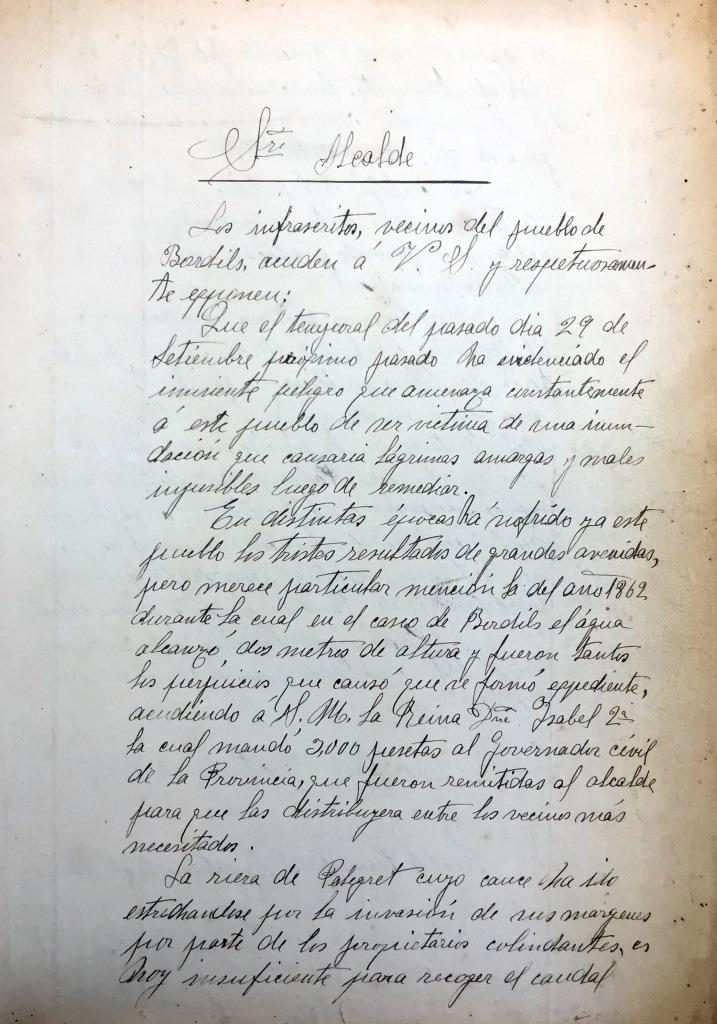 Sr. Alcalde
Los infrascritos, vecinos del pueblo de
Bordils, acuden á V. S. y respetuosamen-
te exponen:
Que el temporal del pasado dia 29 de
Setiembre próximo pasado ha evidenciado el
iminente peligro que amenaza constantemente
á este pueblo de ser victima de una inun-
dación que causaria lágrimas amargas y males
imposibles luego de remediar.
En distintas épocas há sufrido ya este
pueblo los tristes resultados de grandes avenidas,
pero merece particular mención la del año 1862
durante la cual en el casco de Bordils el água
alcanzó dos metros de altura y fueron tantos
los perjuicios que causó que se formó expediente,
acudiendo á S. M. la Reina Dñª Isabel 2ª
la cual mandó 2,000 pesetas al Governador civil
de la Provincia, que fueron remitidas al alcalde
para que las distribuyera entre los vecinos más
necesitados.
La riera de Palagret cuyo cauce ha ido
estrechandose por la invasión de sus margenes
por parte de los propietarios colindantes, es
hoy insuficiente para recoger el caudal